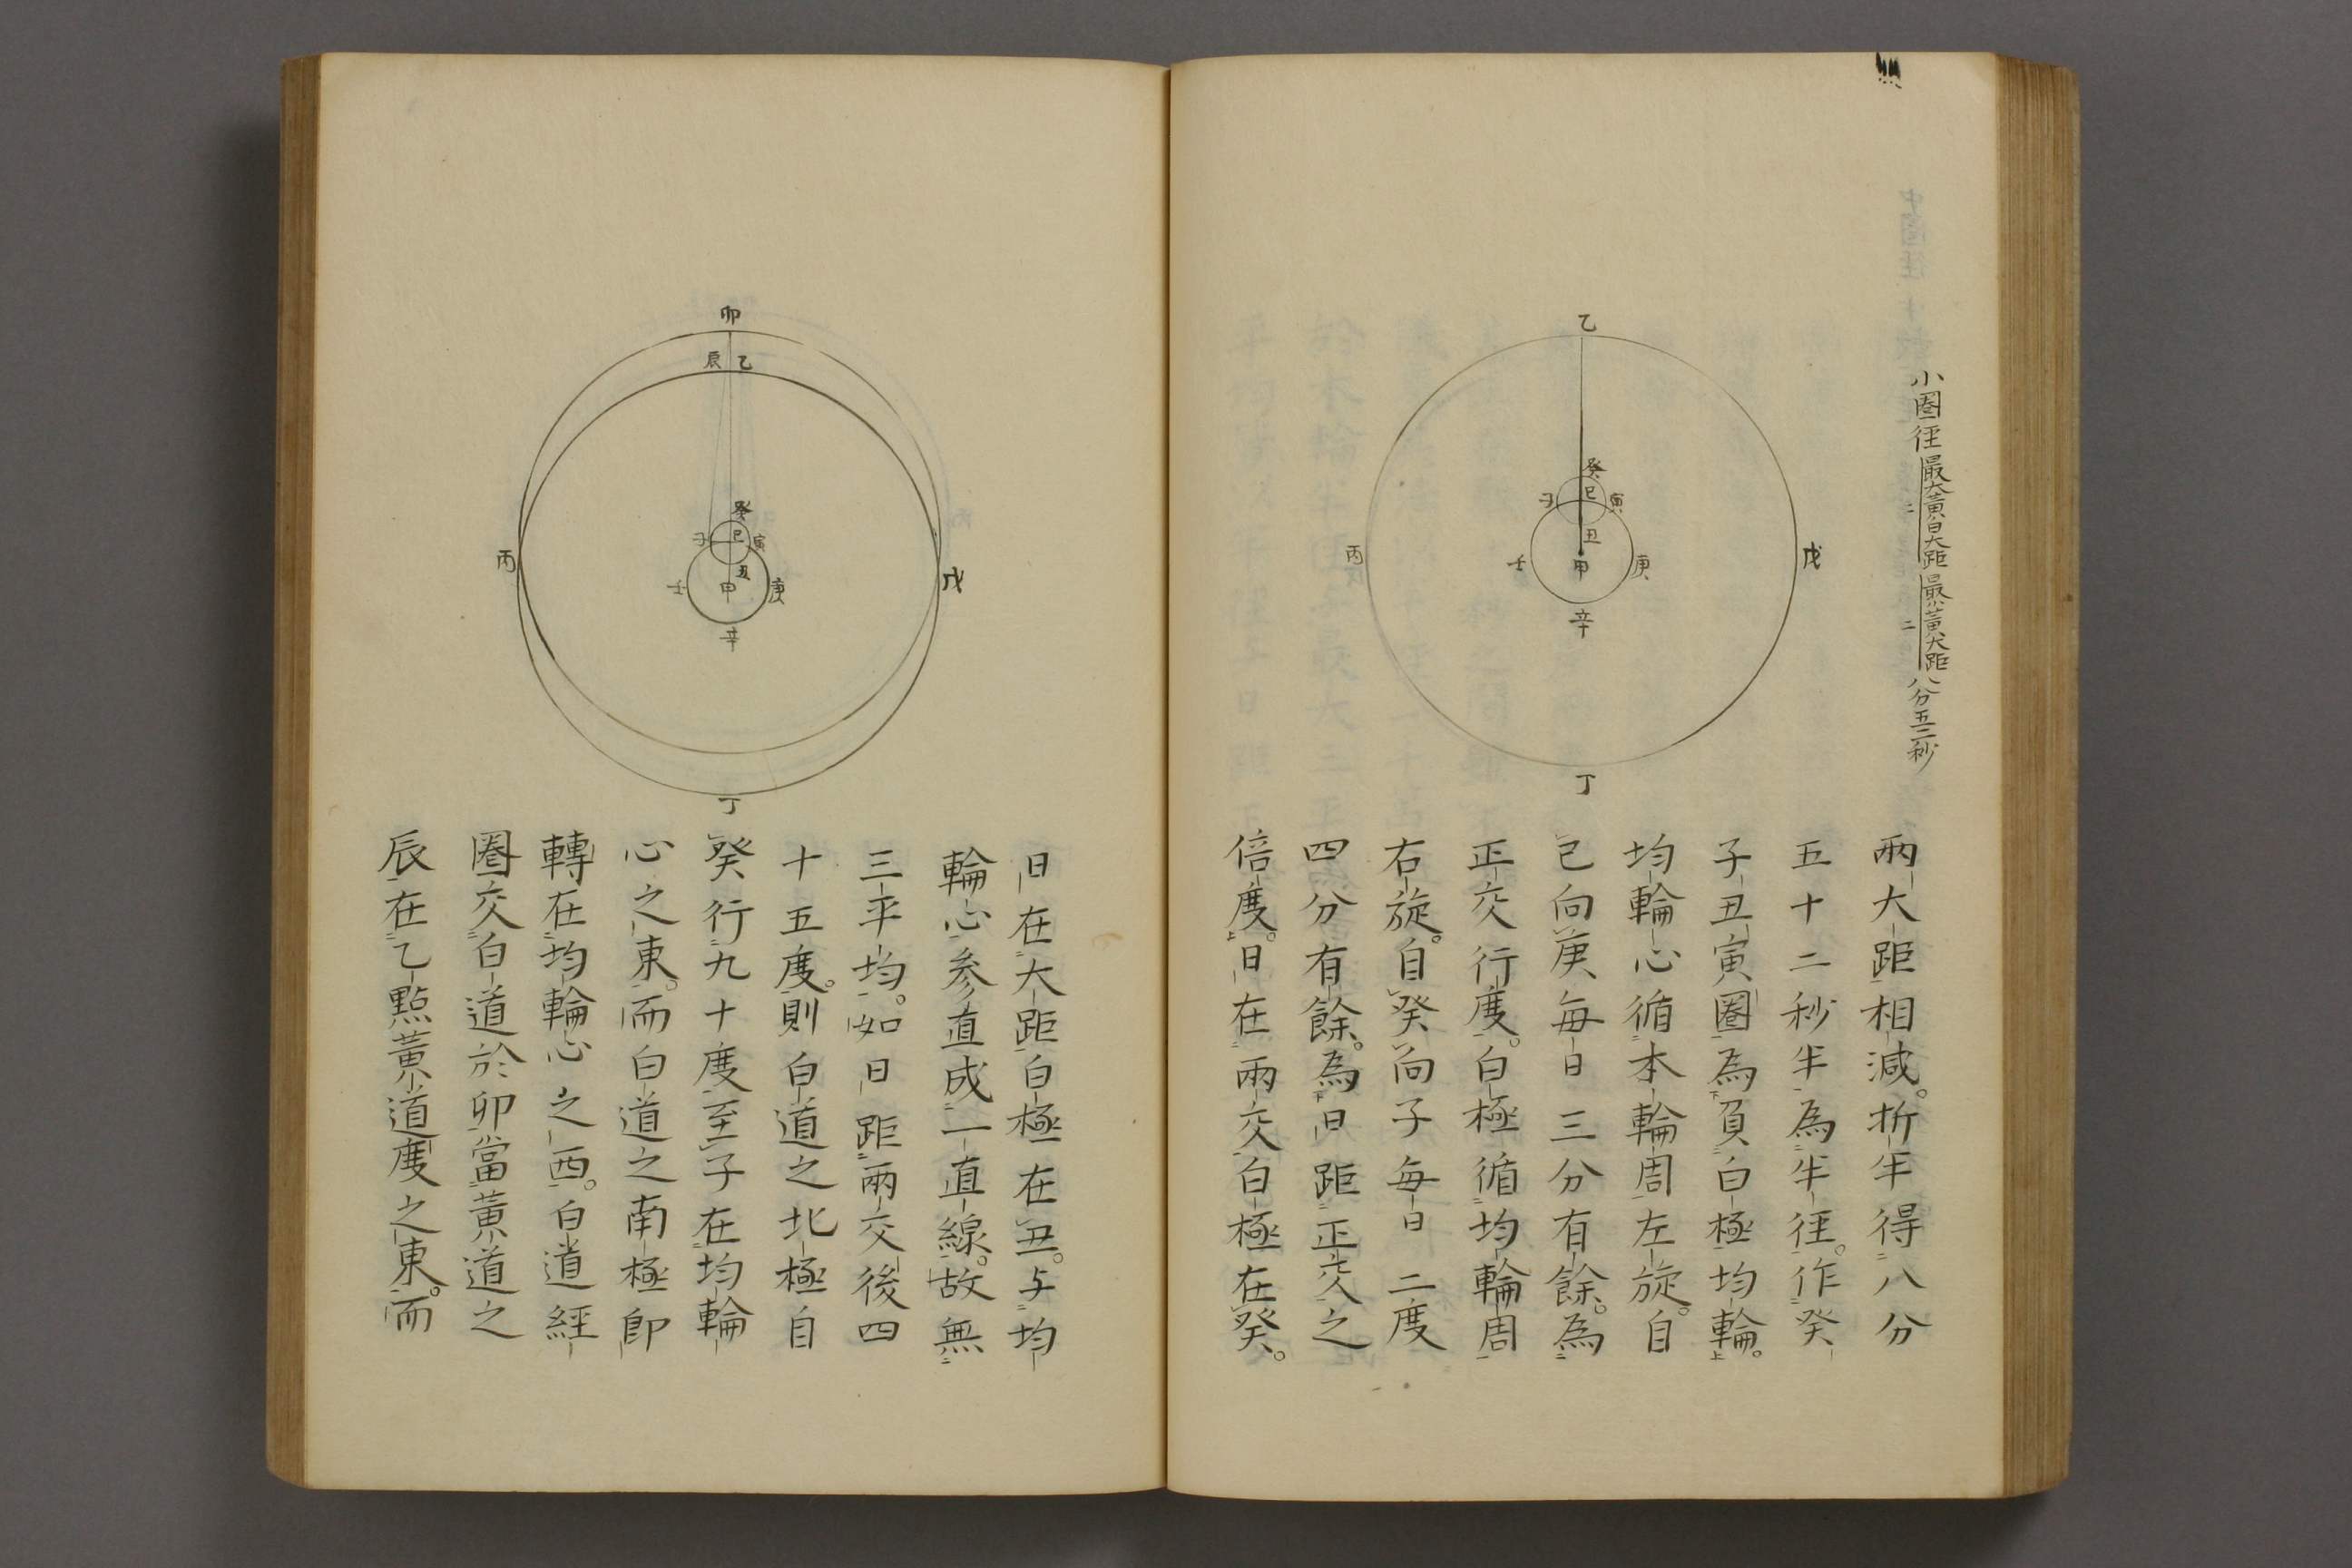 小圏徑 最大黄白大距 最小黄大距 八分五二秒
乙
癸
巳
子
寅
丑
丙
壬
甲
庚
戊
辛
丁
兩大距相減。折半得八分
五十二秒半為半徑。作癸
子丑寅圏為負白極均輪。
均輪心循本輪周左旋。自
己向庚毎日三分有餘。為
正交行度。白極循均輪周
右旋。自癸向子毎日二度
四分有餘。為日距正交之
倍度。日在兩交白極在癸。
卯
辰 乙
癸
巳
子
寅
丑
丙
壬
甲
庚
戊
辛
丁
日在大距白極在丑。与均
輪心参直成一直線。故無
三平均。如日距兩交後四
十五度。則白道之北極自
癸行九十度至子在均輪
心之東。而白道之南極即
轉在均輪心之西。白道經
圏交白道於卯當黄道之
辰在乙㸃黄道度之東。而